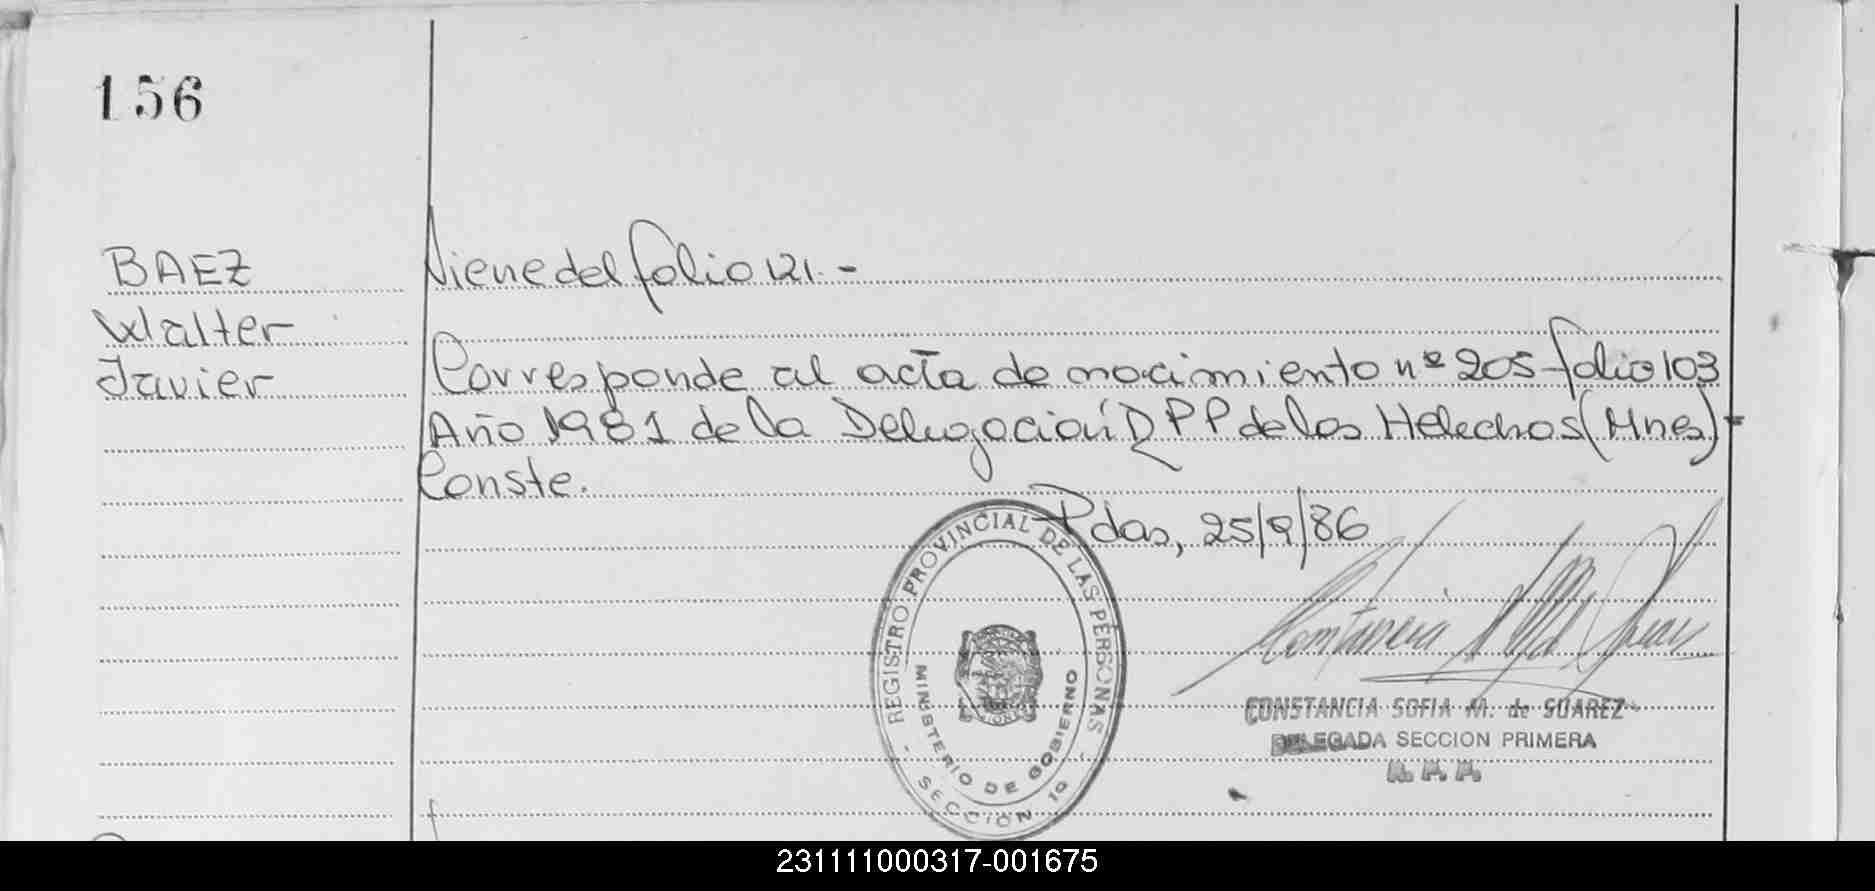 156
BAEZ
Walter
Javier
Viene del folio 121.-
Corresponde al acta de nacimiento nº 205 folio 103
Año 1981 de la Delegación R P P de los Helechos (Mnes)-
Conste.
Pdas, 25/9/86
REGISTRO PROVINCIAL DE LAS PERSONAS
MINISTERIO DE GOBIERNO
- SECCIÓN 1º -
CONSTANCIA SOFIA M. de SUAREZ
DELEGADA SECCION PRIMERA
R. P. P.
231111000317-001675